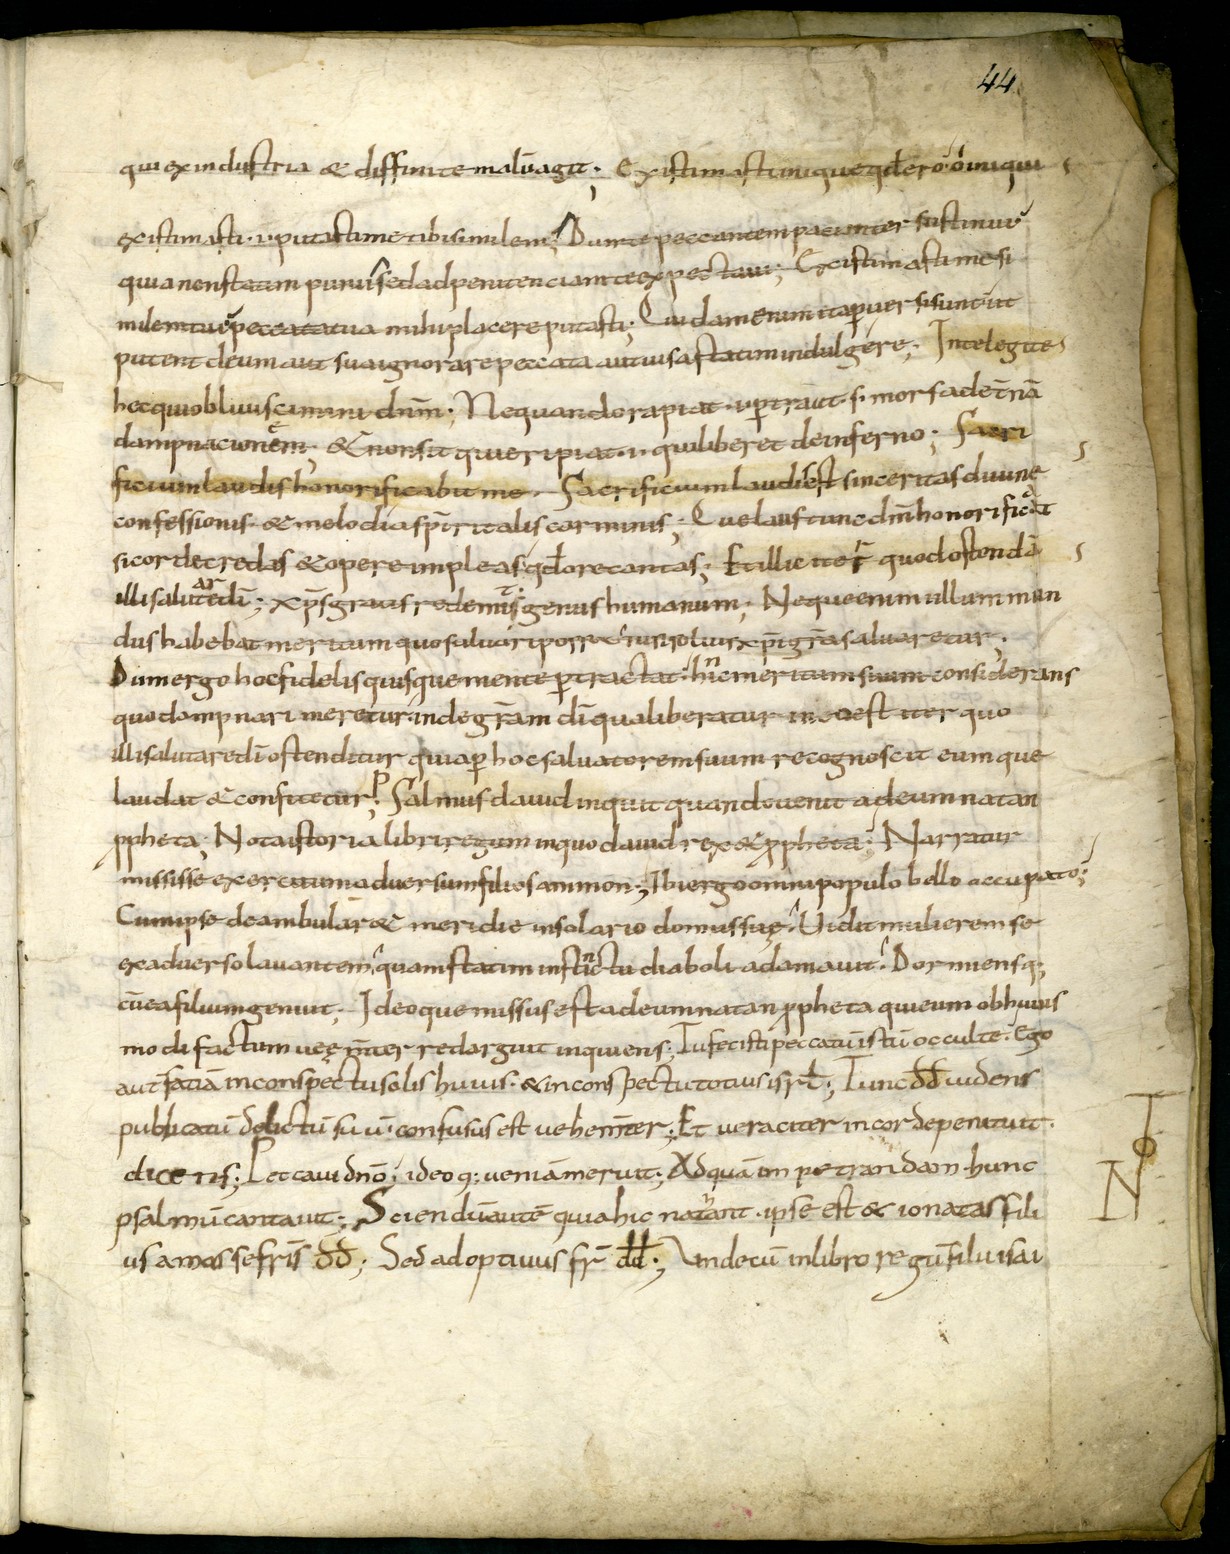 44
qui ex industria & diffinite malū agit; Existimasti inique qđ ero ó iniqui
existimasti .i. putasti me tibi similem; Dum te peccantem pacienter sustinui
quia non statim punui sed ad penitenciam te expectaui; Existimasti me si
milem tui peccata tua mihi placere putasti; Quidam enim ita peruersi sunt ut
putent deum aut sua ignorare peccata aut iusa statim indulgere; Intelegite
hec qui obliuiscimini dn̄m; Nequando rapiat .i. ꝑtrāut .s. mors ad et̄nā
dampnacionem; & non sit qui eripiat .i. qui liberet de inferno; Sacri
ficium laudis honorificabit me. Sacrificium laudis est sinceritas diuinę
confessionis. & melodia sp̄iritalis carminis; Que laus tunc dn̄m honorificat
si corde credas & opere impleas qđ ore cantas; Et illic iter quod ostendā
illi salutare dī; xp̄s gratis redemit genus humanum; Neque enim ullum mun
dus habebat meritum quo saluari posset nisi solius xp̄i gr̄a saluaretur.
Dum ergo hoc fidelis quisque mente ꝑtractat. hinc meritum suum considerans
quo dampnari meretur. inde gr̄am dī qua liberatur inest iter quo
illi salutare dī ostenditur quia ꝑ hoc saluatorem suum recognoscit eumque
laudat & confitetur; Psalmus dauid inquit quando uenit ad eum natan
ꝓpheta; Nota istoria libri regum in quo dauid rex & ꝓpheta; Narratur
misisse exercitum aduersum filios ammon; Ibi ergo omni populo bello occupato;
Cum ipse deambular& meridie in solario domus suę. Uidit mulierem se
ex aduerso lauantem. quam statim instinctu diaboli adamauit. Dormiensq;
cū ea filium genuit; Ideoque missus est ad eum natan ꝓpheta qui eum ob huius
modi factum uehem̄ter redarguit inquiens; Tu fecisti peccatū istū occulte. Ego
aut̄ faciā in conspectu solis huius. & in conspectu totius isrl̄; Tunc dd̄ uidens
publicatū delictū suū. confusus est uehem̄ter; Et ueraciter in corde penituit.
dicens; Peccaui dn̄o; ideoq; ueniā meruit; Ad quā impetrandam hunc
psalmū cantauit; Sciendū autē quia hic natan. ipse est & ionatas fili
us amos se fr̄is dd̄; Sed adoptiuus fr̄ dd̄; Unde cū in libro regū filii isai